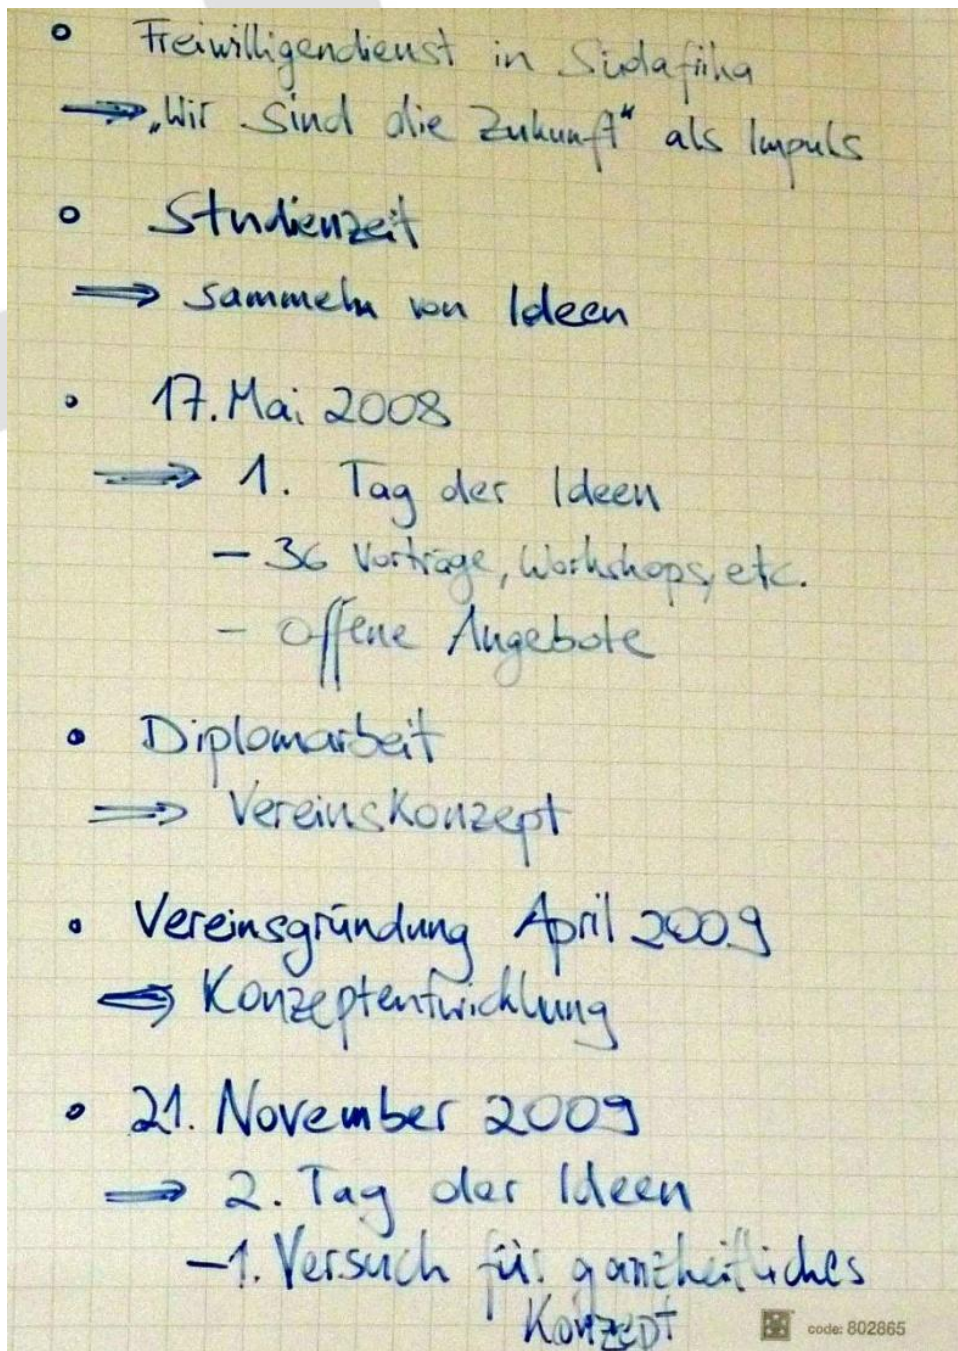 • Freiwilligendienst in Südafrika
⇒ „Wir sind die Zukunft“ als Impuls
• Studienzeit
⇒ sammeln von Ideen
• 17. Mai 2008
⇒ 1. Tag der Ideen
- 36 Vorträge, Workshops, etc.
- offene Angebote
• Diplomarbeit
⇒ Vereinskonzept
• Vereinsgründung April 2009
⇒ Konzeptentwicklung
• 21. November 2009
⇒ 2. Tag der Ideen
- 1. Versuch für ganzheitliches
Konzept
code: 802865